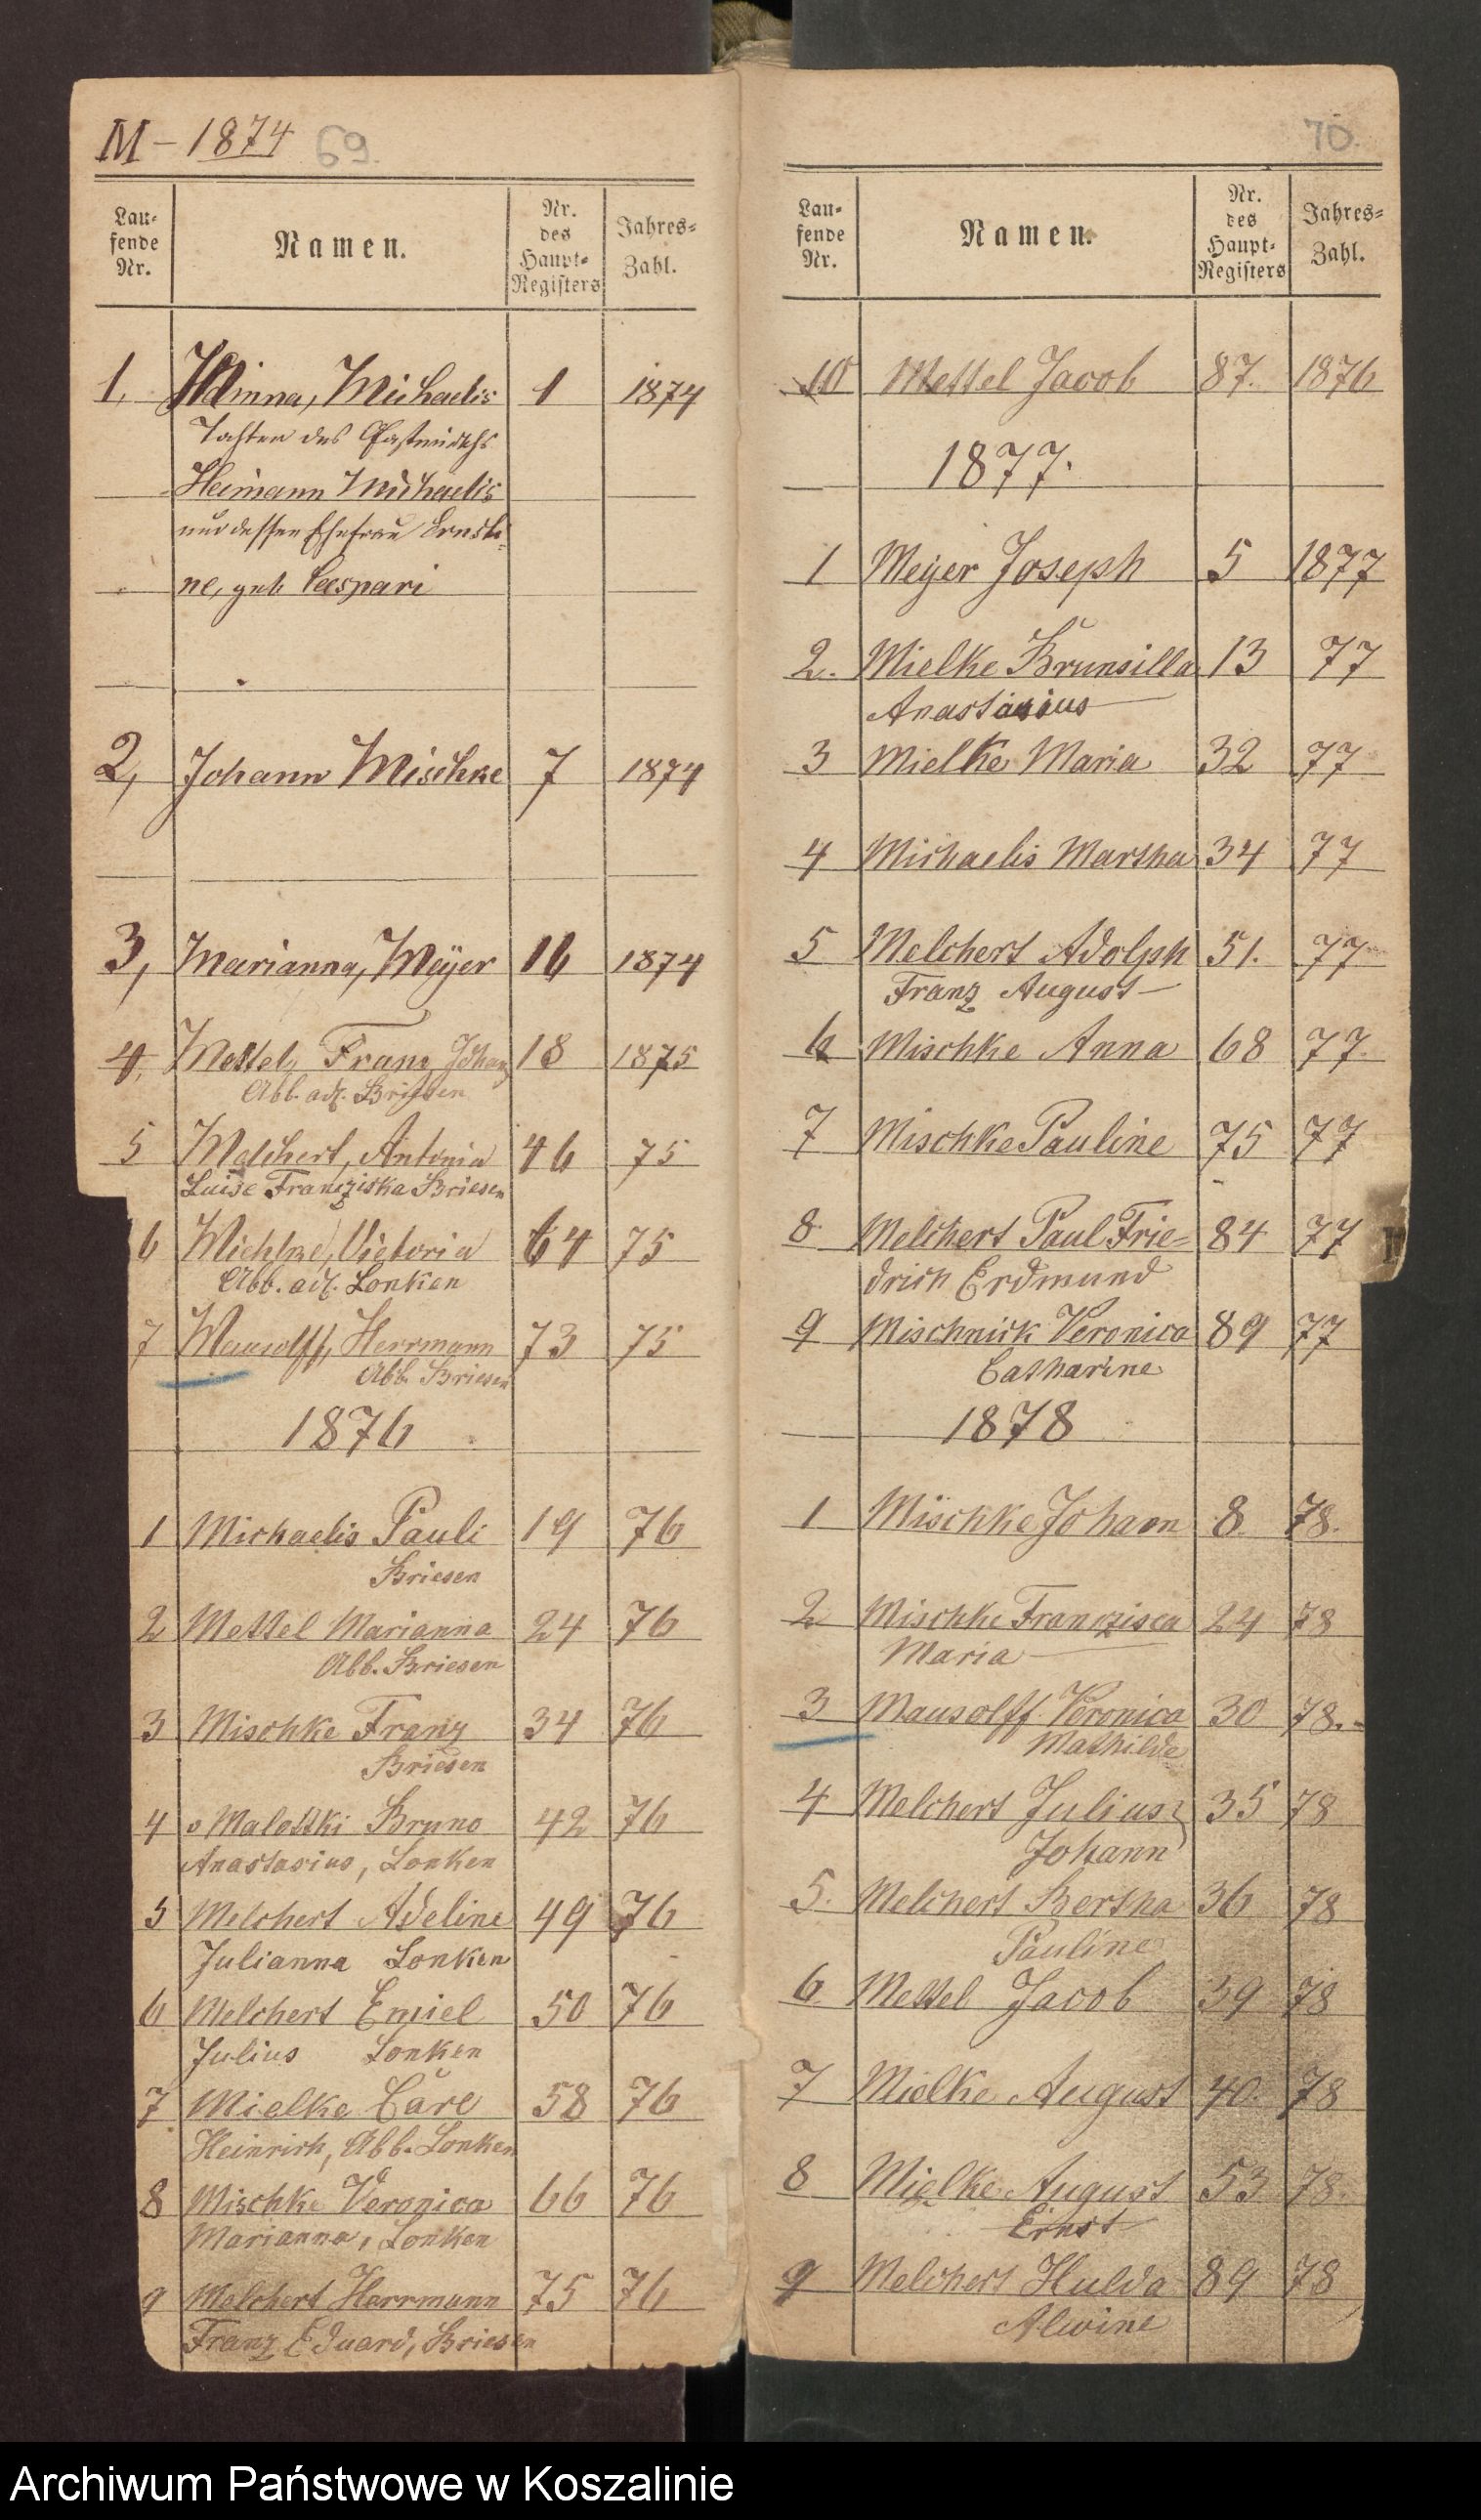 M – 1874 69.
Lau-
fende
Nr.
Namen.
Nr.
des
Haupt-
Registers
Jahres-
Zahl.
1, Minna, Michaelis 1 1874
Tochter des Gastwirths
Heimann Michaelis
und dessen Ehefrau Ernsti-
ne, geb Caspari
2, Johann Mischke 7 1874
3, Marianna, Meÿer 16 1874
4, Mettel, Franz Johann 18 1875
Abb. adl. Briesen
5 Melchert, Antonia 46 75
Luise Franziska Briesen
6 Miehlke, Victoria 64 75
Abb. adl. Lonken
7 Mausolff, Herrmann 73 75
Abb. Briesen
1876
1 Michaelis Pauli 19 76
Briesen
2 Mettel Marianna 24 76
Abb. Briesen
3 Mischke Franz 34 76
Briesen
4 v Malottki Bruno 42 76
Anastasius, Lonken
5 Melchert Adeline 49 76
Julianna Lonken
6 Melchert Emiel 50 76
Julius Lonken
7 Mielke Carl 58 76
Heinrich, Abb. Lonken
8 Mischke Veronica 66 76
Marianna, Lonken
9 Melchert Herrmann 75 76
Franz Eduard, Briesen
70.
Lau-
fende
Nr.
Namen.
Nr.
des
Haupt-
Registers
Jahres-
Zahl.
10 Mettel Jacob 87. 1876
1877.
1 Meyer Joseph 5 1877
2. Mielke Brunsilla 13 77
Anastasius
3 Mielke Maria 32 77
4 Michaelis Martha 34 77
5 Melchert Adolph 51. 77
Franz August
6 Mischke Anna 68 77.
7 Mischke Pauline 75 77
8. Melchert Paul Frie- 84 77
drich Erdmund
9 Mischnick Veronica 89 77
Catharine
1878
1 Mischke Johann 8. 78.
2 Mischke Franzisca 24 78
Maria
3 Mausolff Veronica 30 78.
Mathilde
4 Melchert Julius 35 78
Johann
5. Melchert Bertha 36 78
Pauline
6. Mettel Jacob 39 78
7 Mielke August 40. 78
8 Mielke August 53 78.
Ernst
9 Melchert Hulda 89 78
Alwine
Archiwum Państwowe w Koszalinie